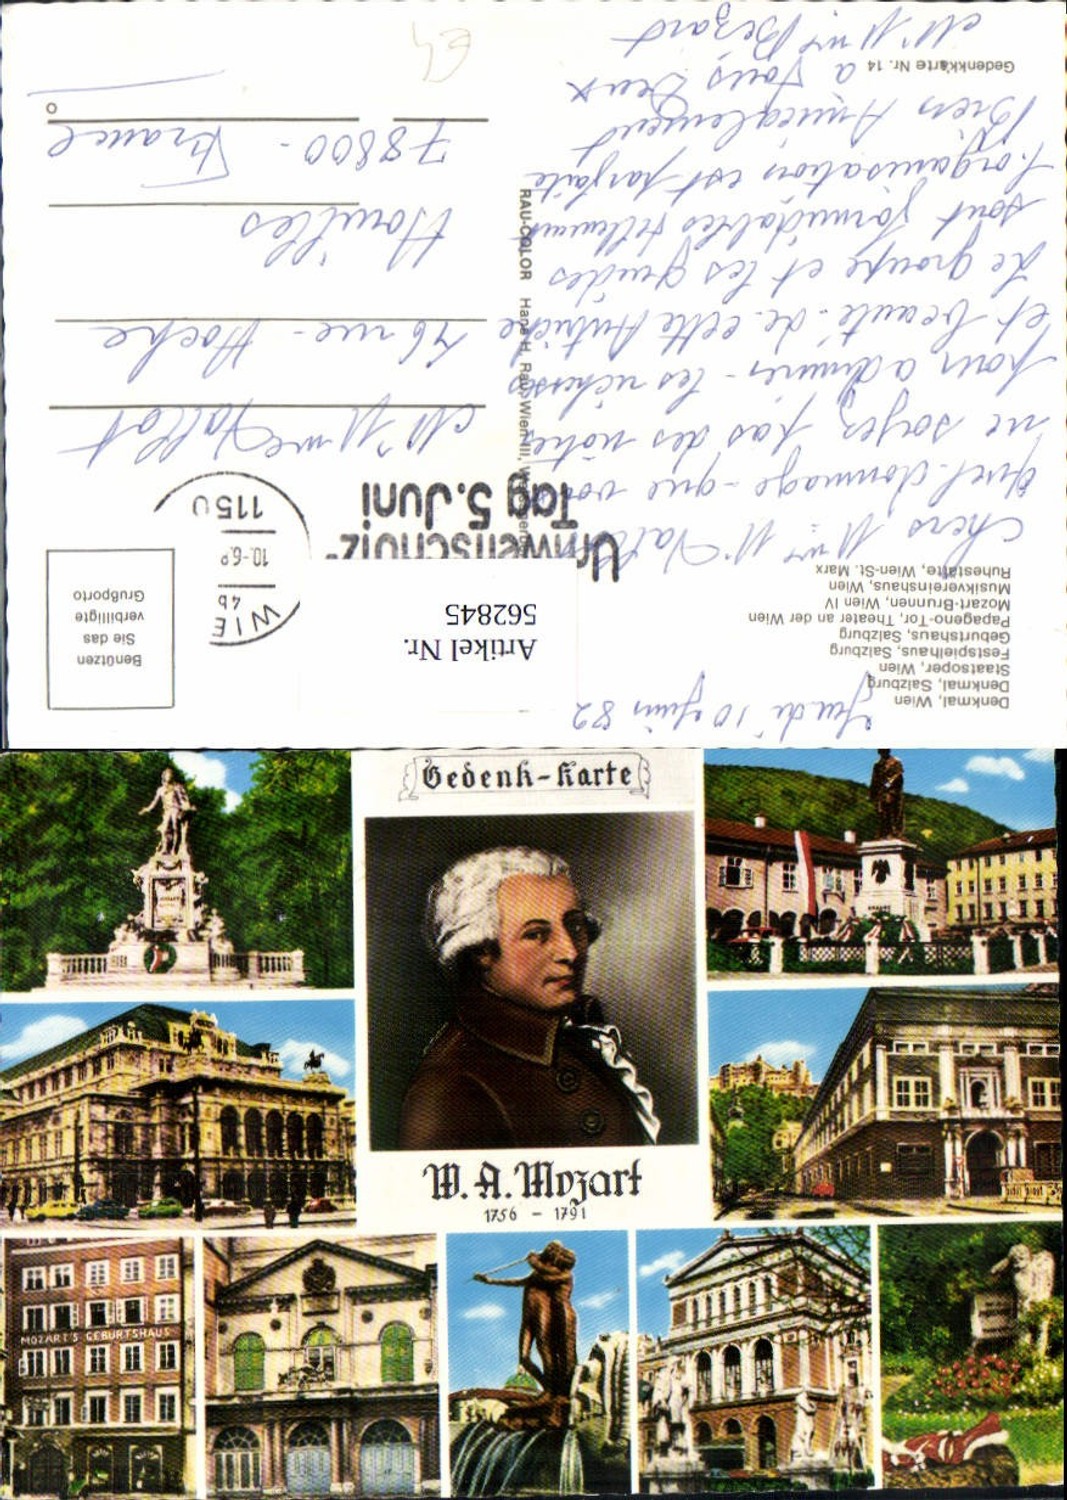 Jeudi 10 Juin 82
Chers Mr Mme
quel dommage - que vous
ne soyez pas des nôtres
pour admirer - les richesses
et beauté - de cette Autriche
Le groupe et les guides
sont formidables tellement
l'organisation est parfaite
Bien Amicalement
a Vous Deux
Denkmal, Wien
Denkmal, Salzburg
Staatsoper, Wien
Festspielhaus, Salzburg
Geburtshaus, Salzburg
Papageno-Tor, Theater an der Wien
Mozart-Brunnen, Wien IV
Musikvereinshaus, Wien
Ruhestätte, Wien-St. Marx
Gedenkkarte Nr. 14
RAU-COLOR Hans H. Rau, Wien III,
Artikel Nr.
562845
Umweltschutz-
Tag 5. Juni
WIE
4b
10.-6.8
1150
Benützen
Sie das
verbilligte
Grußporto
46 rue - Hoche
Houilles
78800 - France
Gedenk-Karte
W. A. Mozart
1756 - 1791
MOZART'S GEBURTSHAUS